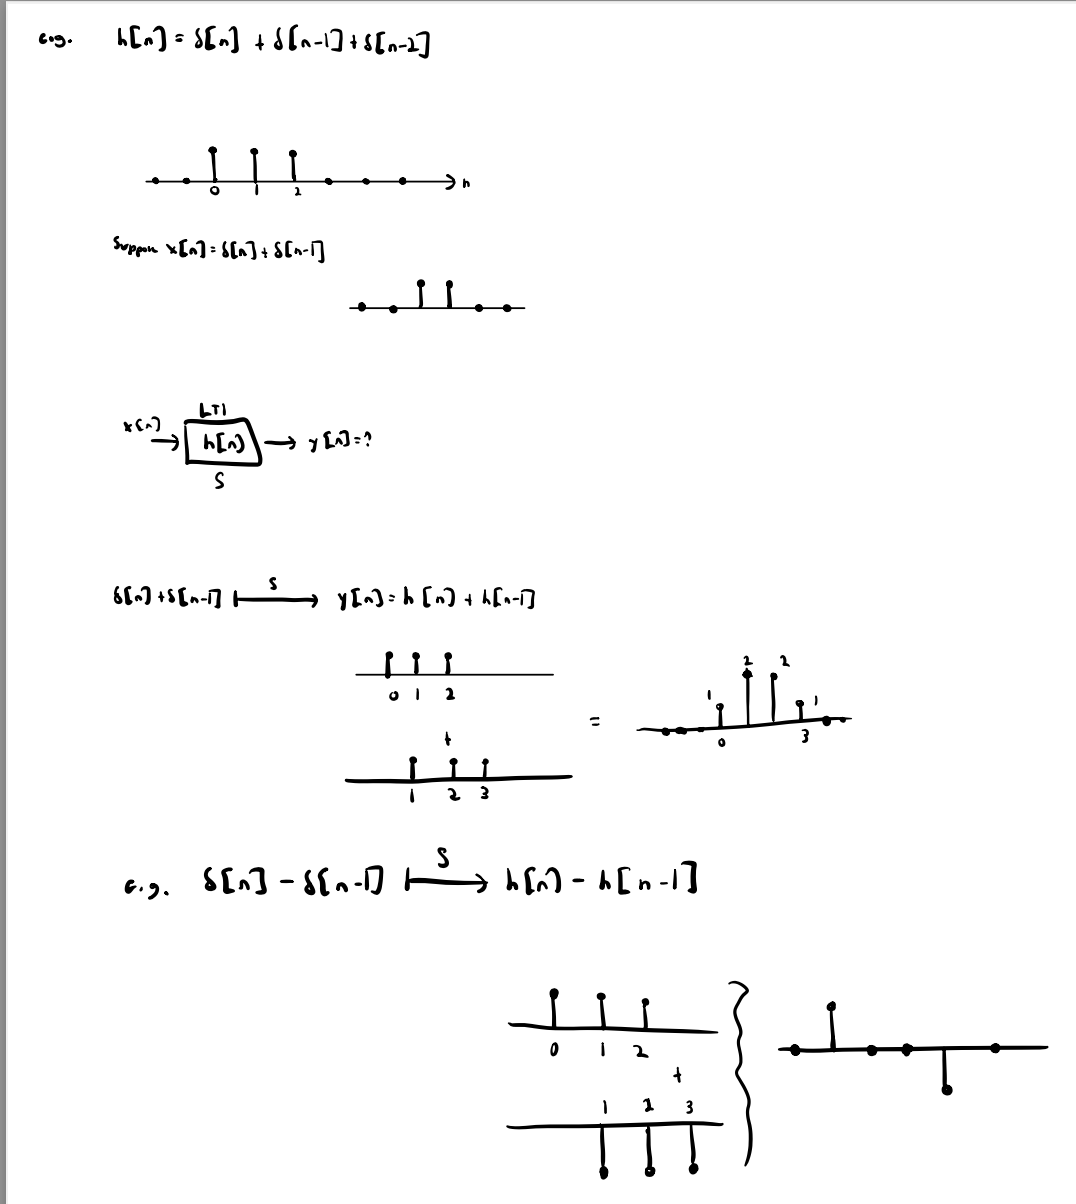 e.g. h[n] = δ[n] + δ[n-1] + δ[n-2]
0 1 2 n
Suppose x[n] = δ[n] + δ[n-1]
LTI
x[n] → h[n] → y[n] = ?
S
δ[n] + δ[n-1] S ⟼ y[n] = h[n] + h[n-1]
0 1 2
+
1 2 3
=
1 2 2 1
0 3
e.g. δ[n] - δ[n-1] S ⟼ h[n] - h[n-1]
0 1 2
+
1 2 3